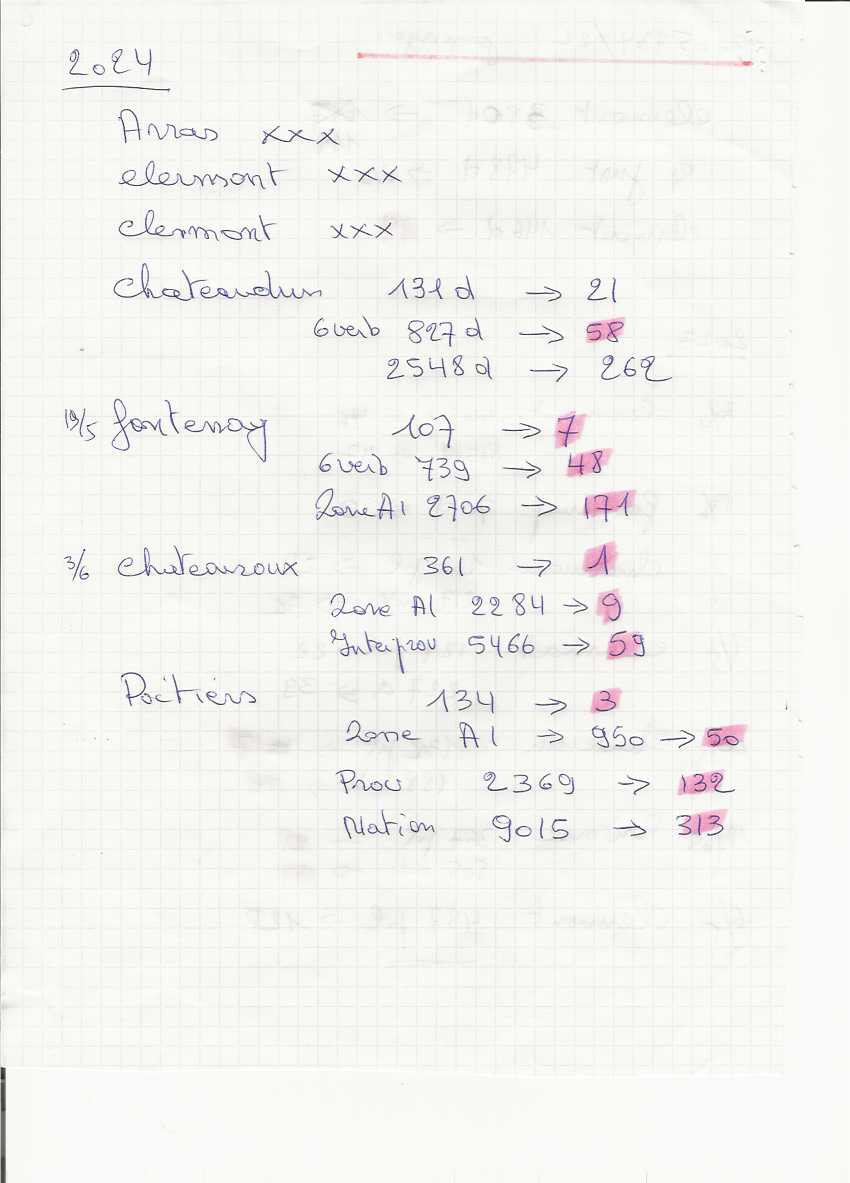 2024
Arras xxx
clermont xxx
clermont xxx
Chateaudun 131 d → 21
6verb 827 d → 58
2548 d → 262
19/5 fontenay 107 → 7
6verb 739 → 48
Zone A1 2706 → 171
3/6 Chateauroux 361 → 1
Zone A1 2284 → 9
Interprov 5466 → 59
Poitiers 134 → 3
Zone A1 → 950 → 50
Prov 2369 → 132
Nation 9015 → 313